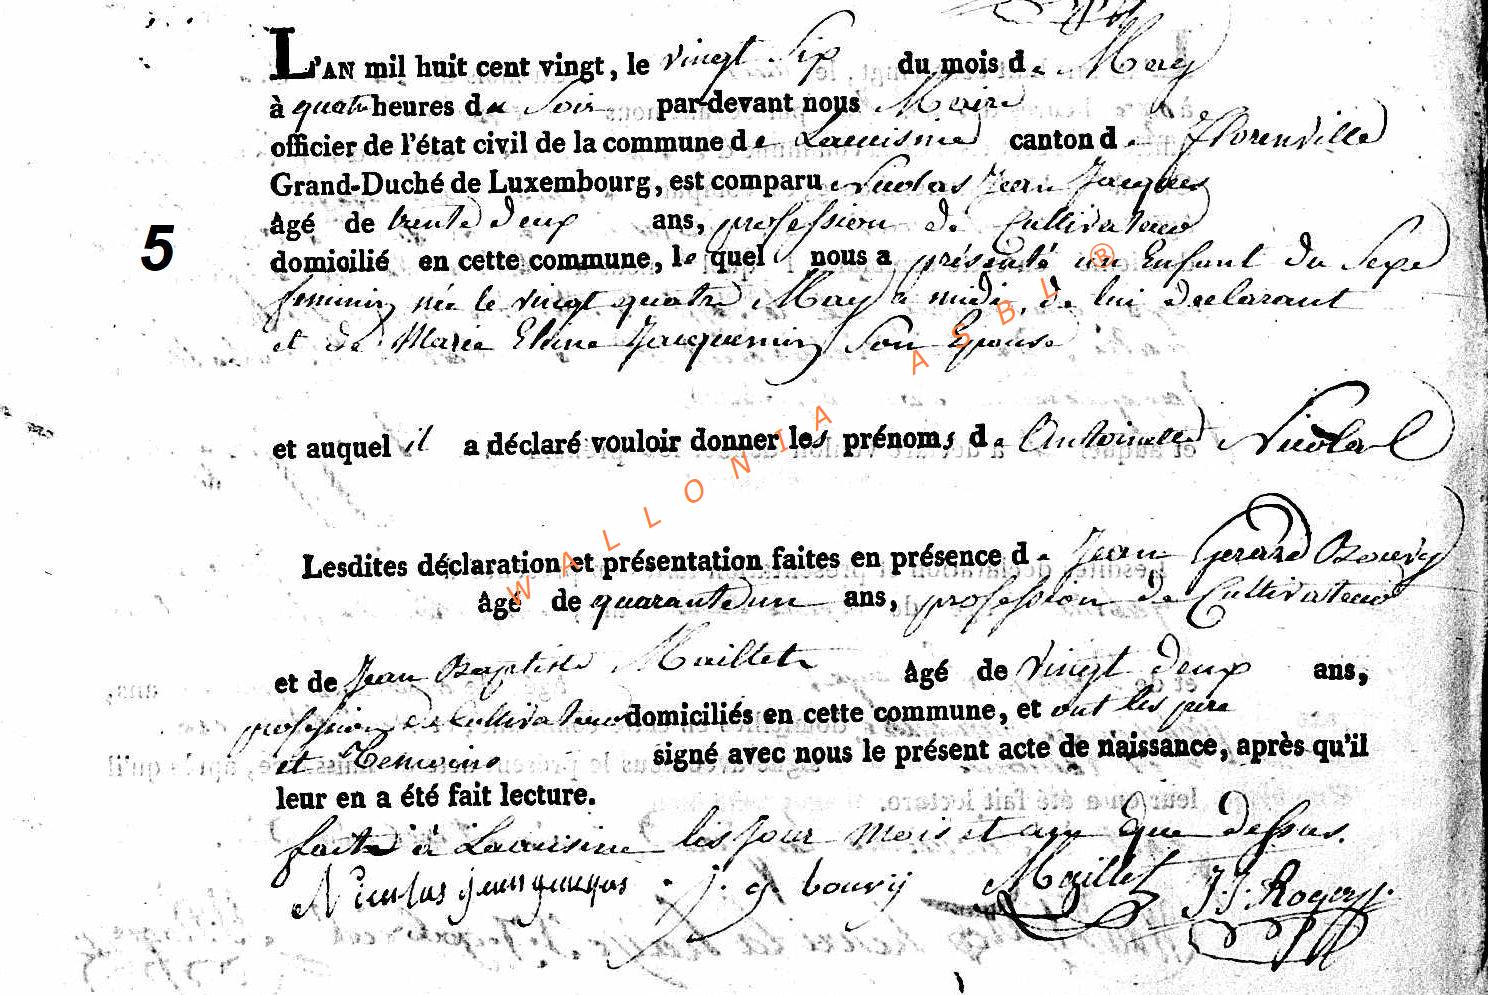 L'AN mil huit cent vingt, le vingt Six du mois de May
à quatre heures du Soir par-devant nous Maire
officier de l'état civil de la commune de Lacuisine canton de florenville
Grand-Duché de Luxembourg, est comparu Nicolas Jean Jacques
âgé de trente deux ans, profession de Cultivateur
5
domicilié en cette commune, le quel nous a présenté un Enfant du Sexe
feminin née le vingt quatre May a midi, de lui declarant
et de Marie Jacquemin Son Epouse
et auquel il a déclaré vouloir donner les prénoms de Antoinette Nicolas
Lesdites déclaration et présentation faites en présence de Jean Gerard Bouvy
âgé de quarante un ans, profession de Cultivateur
et de Jean Baptiste Maillet âgé de vingt deux ans,
profession de Cultivateur domiciliés en cette commune, et ont les pere
et Temoins signé avec nous le présent acte de naissance, après qu'il
leur en a été fait lecture.
fait à Lacuisine les Jour mois et an que dessus.
Nicolas jean jacques j. g. bouvy Maillet J. J. Rogery
WALLONIA ASBL ®